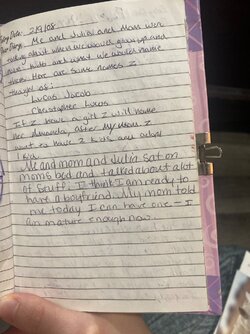 Date: 2/9/08
Dear Diary: Me and Julia and Mom were
talking about when we would grow up and
have kids and what we would name
them. Here are some names I
thought of:
Lucas Jacob
Christopher Lucas
If I have a girl I will name
her Amanda, after my Mom. I
want to have 2 kids and adopt
1 kid.
Me and mom and Julia sat on
moms bed and talked about a lot
of stuff. I think I am ready to
have a boyfriend. My mom told
me today I can have one - I
am mature enough now.